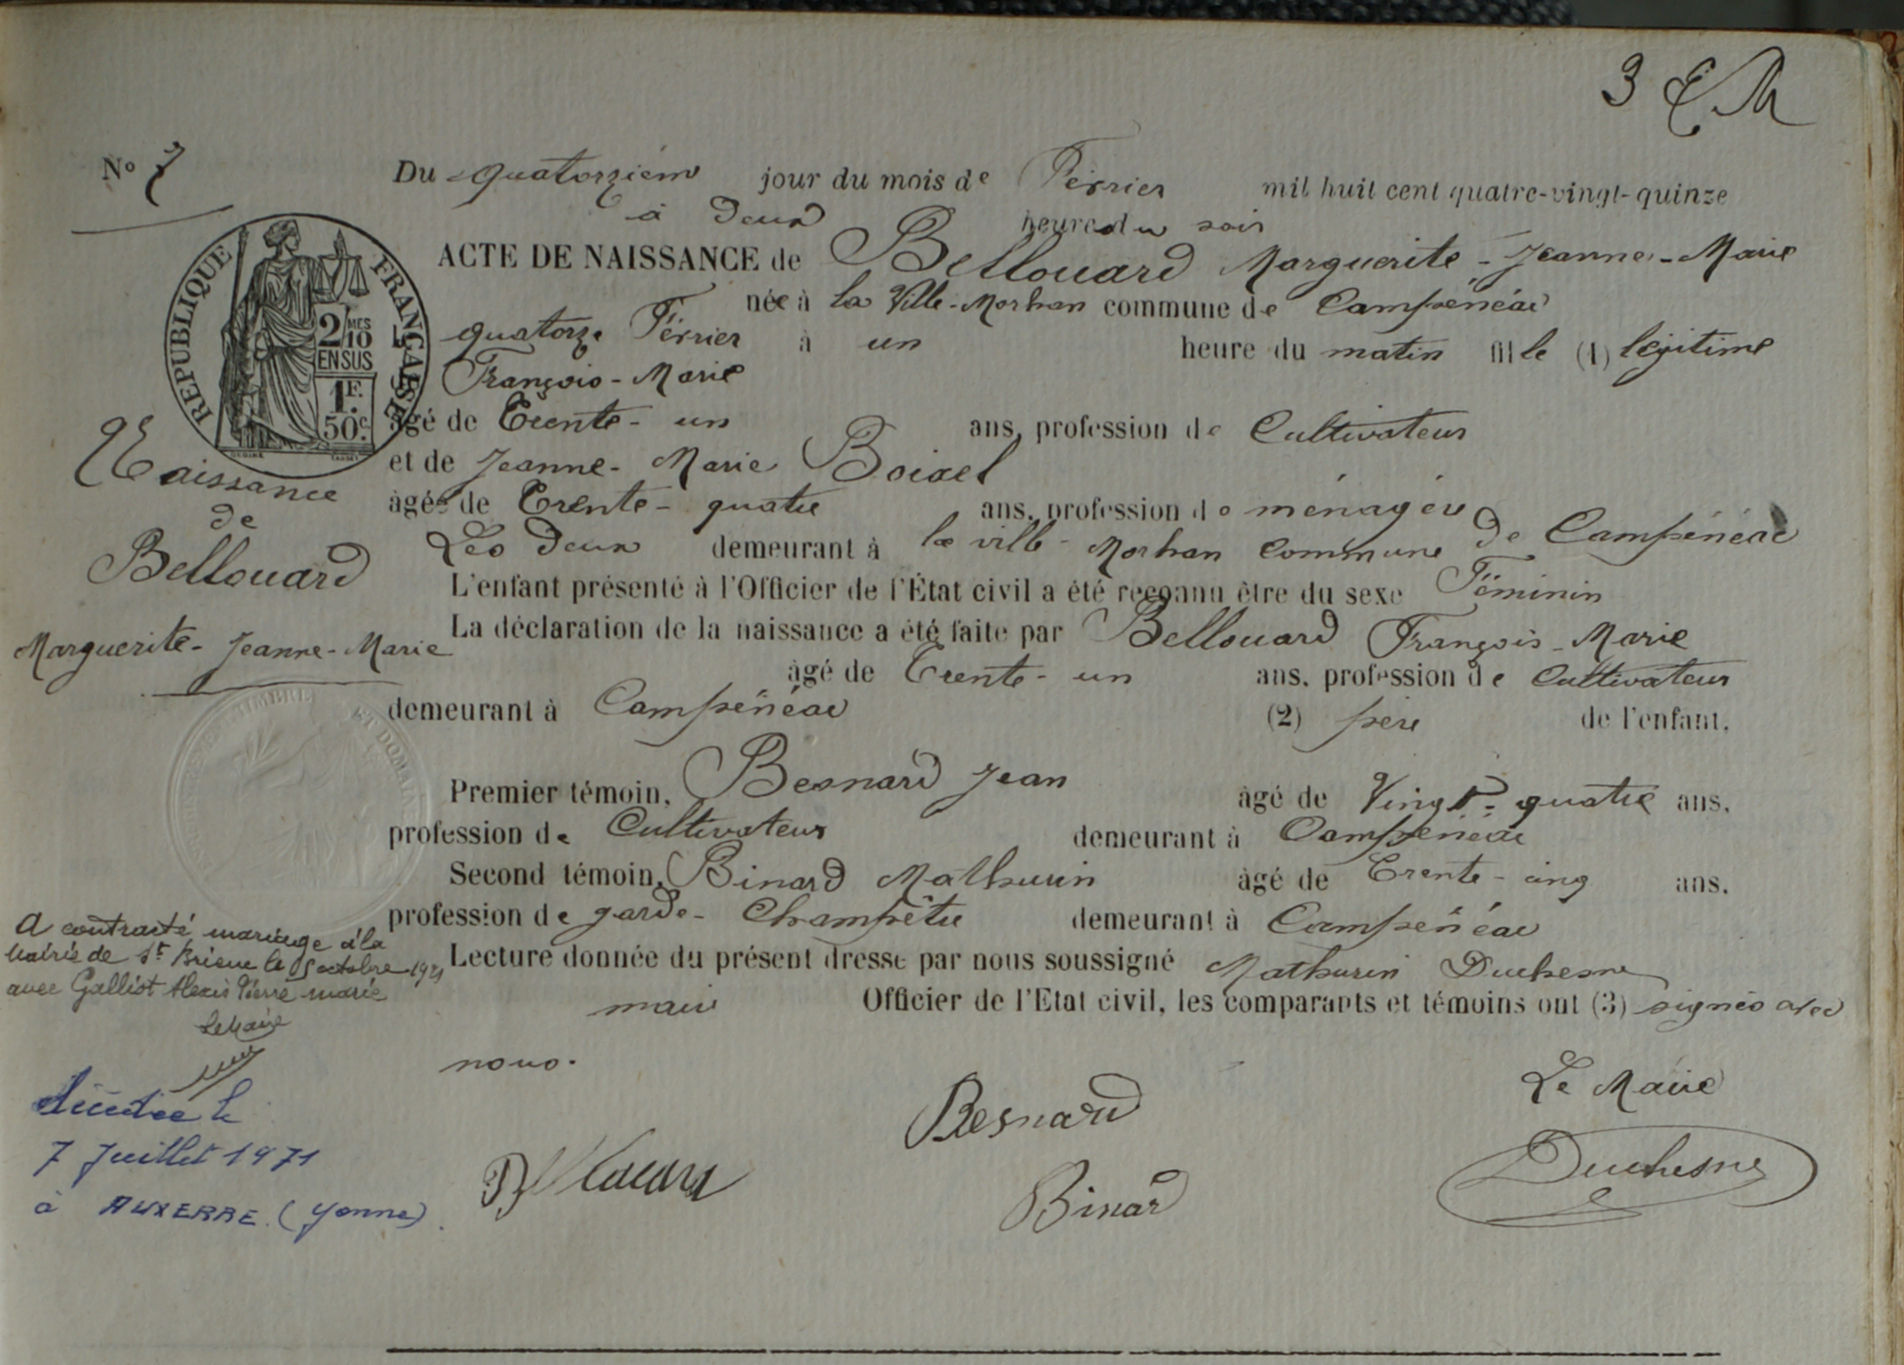 3 E M
N° 7
Du quatorzième jour du mois de Février mil huit cent quatre-vingt-quinze
à deux heures du soir
ACTE DE NAISSANCE de Bellouard Marguerite-Jeanne-Marie
née à la Ville-Morhan commune de Campénéac
quatorze Février à un heure du matin fille (1) légitime
François-Marie
âgé de Trente-un ans, profession de Cultivateur
et de Jeanne-Marie Boixel
âgée de Trente-quatre ans, profession de ménagère
Les deux demeurant à la ville-Morhan commune de Campénéac
L'enfant présenté à l'Officier de l'État civil a été reconnu être du sexe Féminin
La déclaration de la naissance a été faite par Bellouard François-Marie
âgé de Trente-un ans, profession de Cultivateur
demeurant à Campénéac (2) père de l'enfant.
Premier témoin, Besnard Jean âgé de Vingt-quatre ans,
profession de Cultivateur demeurant à Campénéac
Second témoin, Binard Mathurin âgé de Trente-cinq ans.
profession de garde-Champêtre demeurant à Campénéac
Lecture donnée du présent dressé par nous soussigné Mathurin Duchesne
maire Officier de l'Etat civil, les comparants et témoins ont (3) signés avec
nous.
Le Maire
Besnard
Bellouard
Binard
Duchesne
REPUBLIQUE FRANÇAISE
2/10 MES
EN SUS
1F.
50c.
Naissance
de
Bellouard
Marguerite-Jeanne-Marie
A contracté mariage à la
Mairie de St Brieuc le 5 octobre 1921
avec Galliot Alexis Pierre marie
Le Maire
décédée le
7 Juillet 1971
à AUXERRE (Yonne).